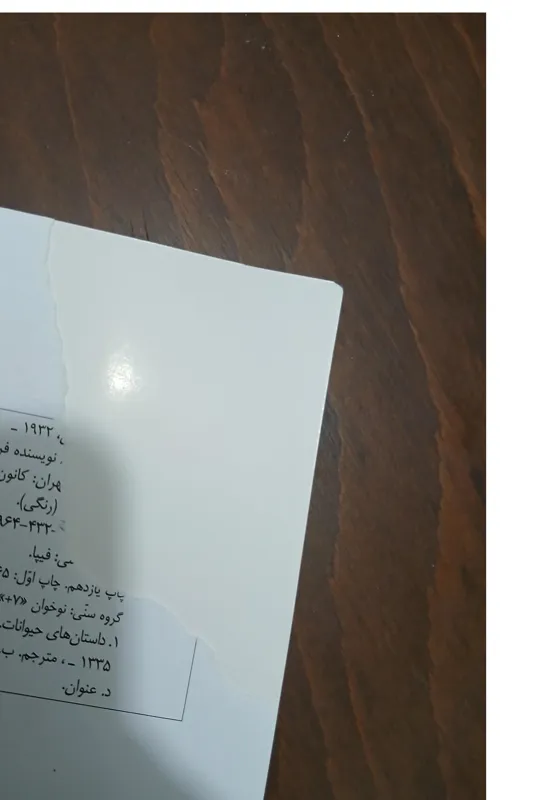 ، ۱۹۳۲ _
نویسنده
هران: کانون
(رنگی).
۹۶۴-۴۳۲-
سی: فیپا.
چاپ یازدهم. چاپ اوّل: ۶۵
گروه سنّی: نوخوان «۷+»
۱. داستان‌های حیوانات.
۱۳۳۵ _ ، مترجم. ب.
د. عنوان.